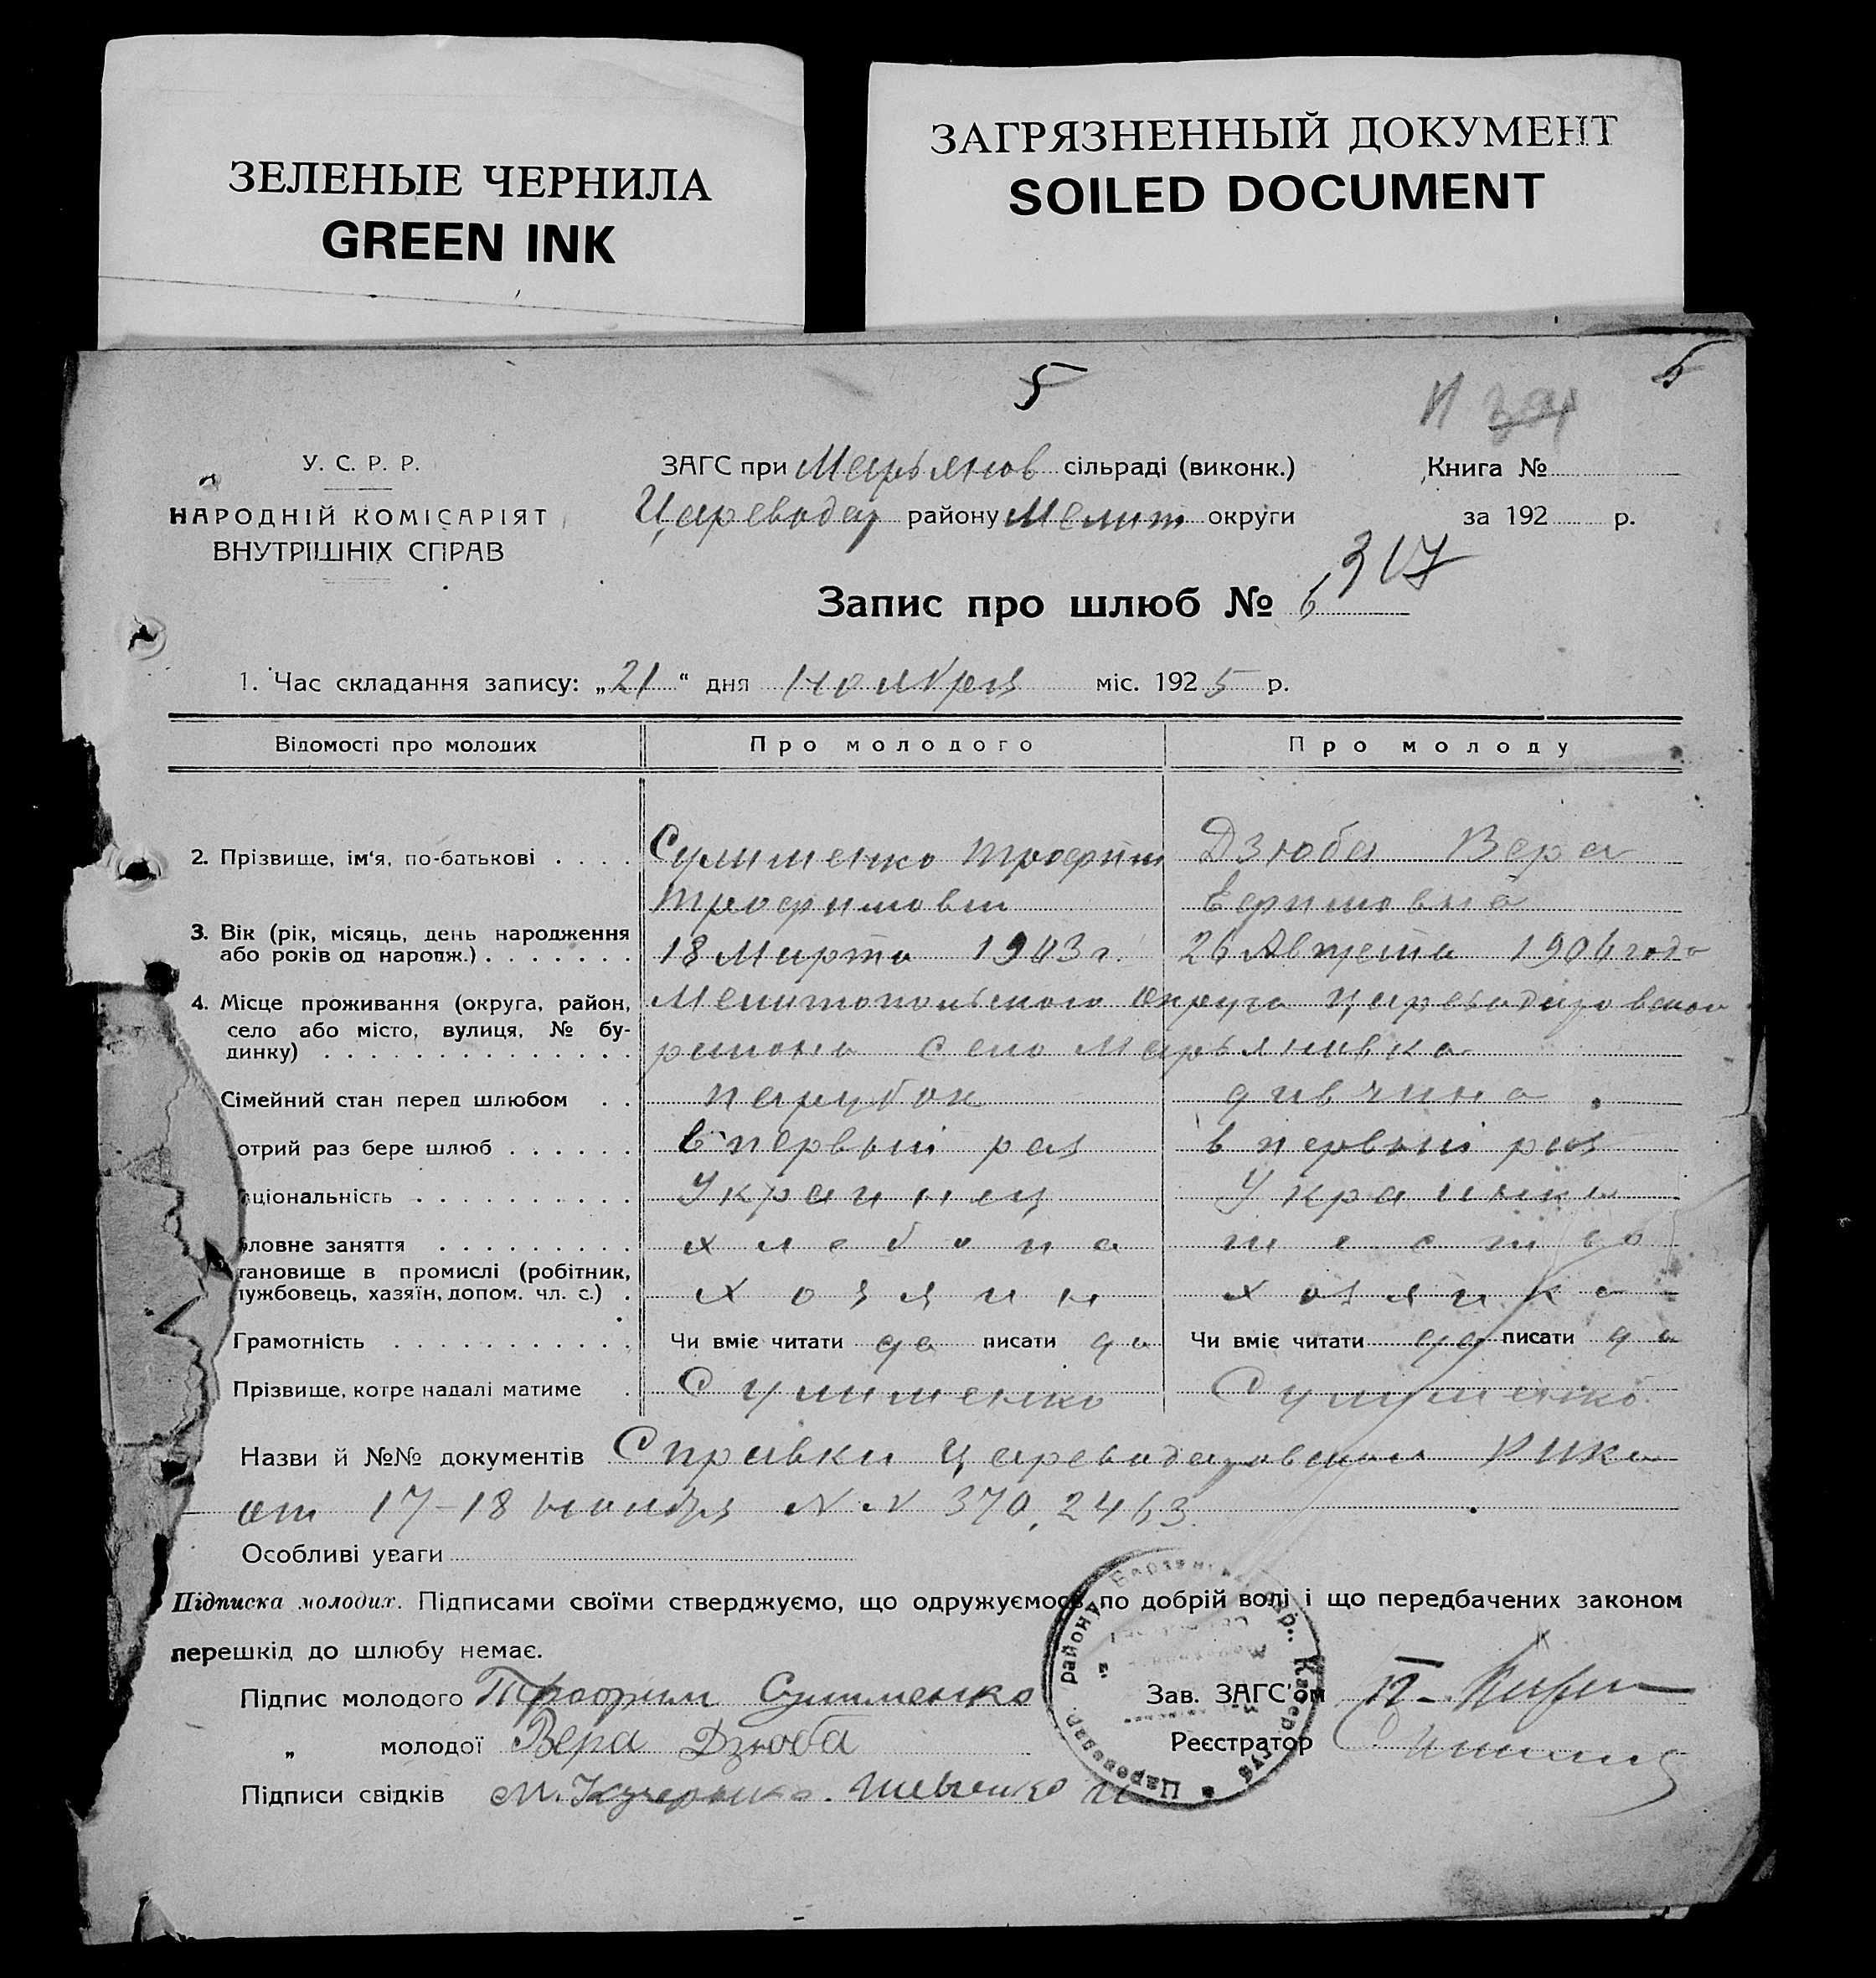 ЗЕЛЕНЫЕ ЧЕРНИЛА
GREEN INK
ЗАГРЯЗНЕННЫЙ ДОКУМЕНТ
SOILED DOCUMENT
5
5
У. С. Р. Р.
НАРОДНІЙ КОМІСАРІЯТ
ВНУТРІШНІХ СПРАВ
ЗАГС при Марьянов сільраді (виконк.)
Цареводар району Мелит округи
Книга №
за 192 р.
317
Запис про шлюб № 6
1. Час складання запису: „21“ дня ноября міс. 1925 р.
Відомості про молодих Про молодого Про молоду
2. Прізвище, ім'я, по-батькові Сулименко Трофим Дзюба Вера
Трофимович Ефимовна
3. Вік (рік, місяць, день народження або років од народж.) 18 Марта 1903 г. 26 Августа 1906 года
4. Місце проживання (округа, район, Мелитопольского Округа Цареводаровского
село або місто, вулиця, № будинку) района Село Марьяновка
Сімейний стан перед шлюбом парубок дивчина
отрий раз бере шлюб в первый раз в первый раз
ціональність Украинец Украинка
оловне заняття хлебопа
тановище в промислі (робітник,
лужбовець, хазяїн, допом. чл. с.) хозяин хозяйка
Грамотність Чи вміє читати да писати да Чи вміє читати да писати да
Прізвище, котре надалі матиме Сулименко Сулименко
Назви й №№ документів Справки Цареводаровского Рика
от 17-18 ноября N N 370, 2463
Особливі уваги
Підписка молодих. Підписами своїми стверджуємо, що одружуємось по добрій волі і що передбачених законом
перешкід до шлюбу немає.
Підпис молодого Трофим Сулименко
„ молодої Вера Дзюба
Підписи свідків М. Кучеренко. Шевченко
Зав. ЗАГС'ом
Реєстратор
Царевдар. району